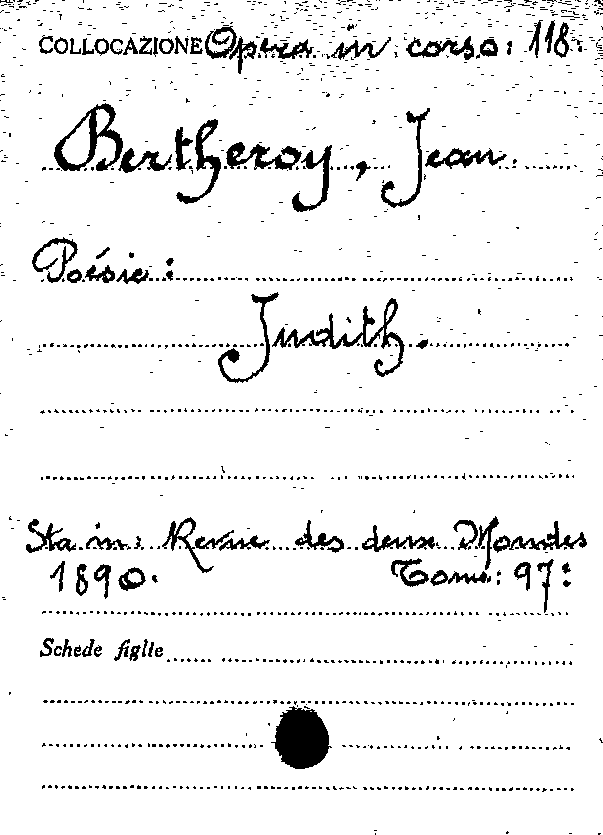 COLLOCAZIONE Opera in corso: 118:
Bertheroy, Jean.
Poésie:
Judith.
Sta in: Revue des deux Mondes
1890. Tome: 97:
Schede figlie